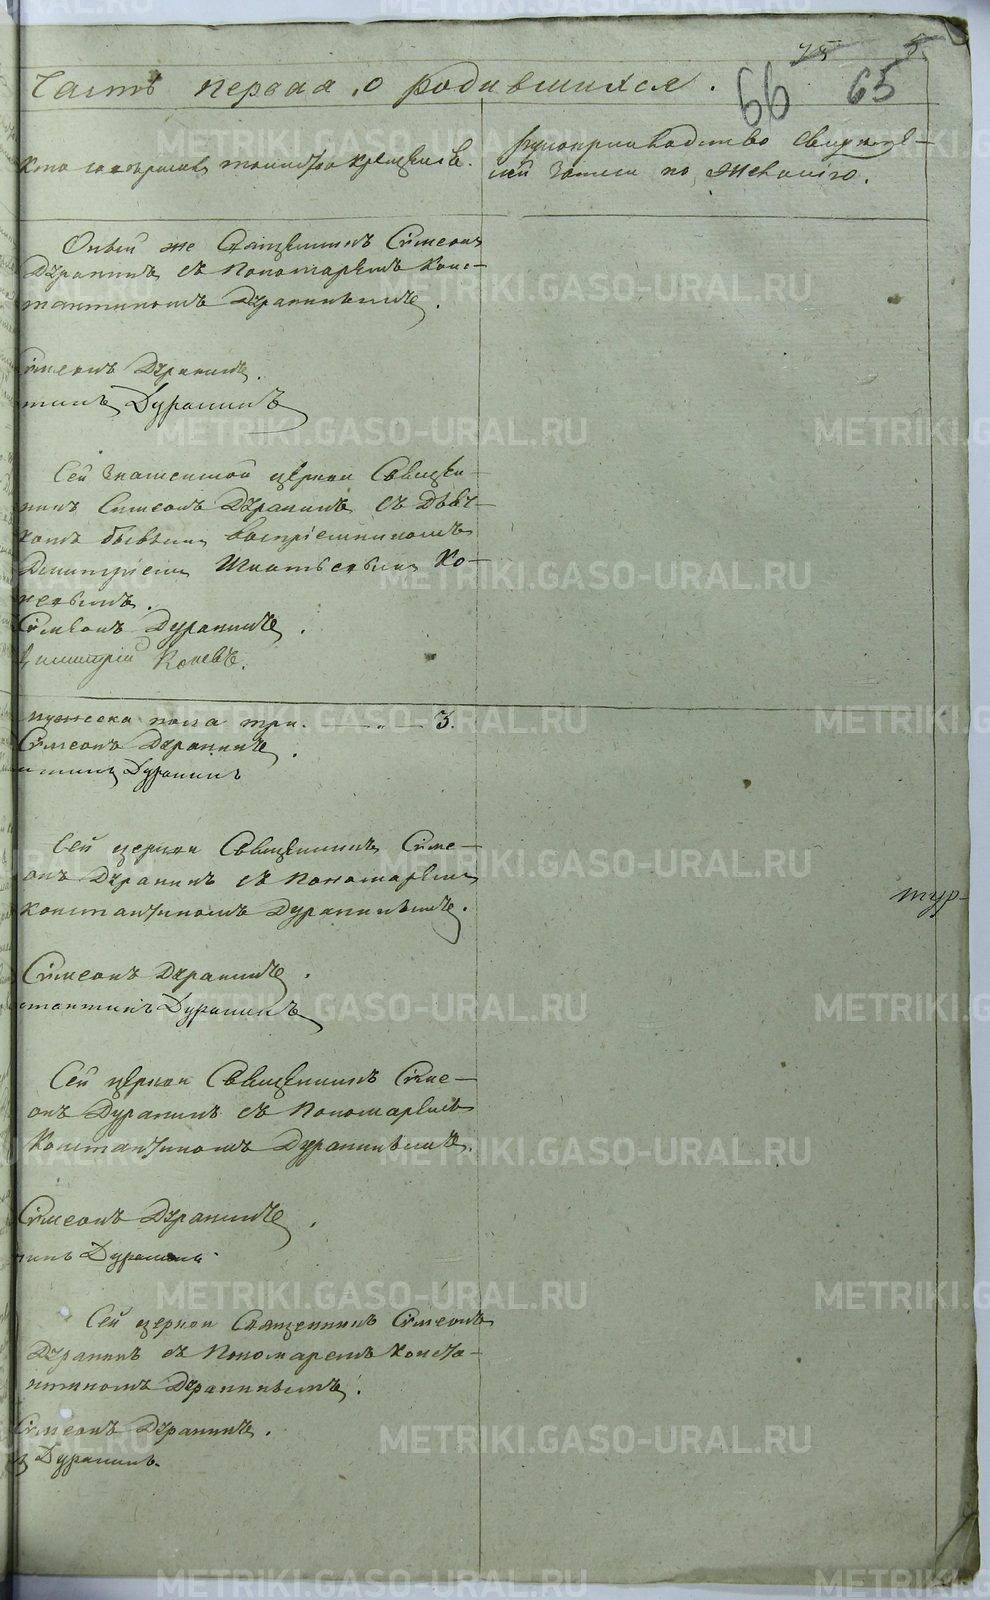 75 5.
66 65
Часть первая, о родившихся.
Кто совершалъ таинство крещенія.
Рукоприкладство свидѣтелей записи по желанію.
Оный же Священникъ Сімеонъ
Дуранинъ съ Пономаремъ Конс-
тантиномъ Дуранинымъ.
Сімеонъ Дуранинъ.
тинъ Дуранинъ
Сей Знаменной церкви Священ-
никъ Сімеонъ Дуранинъ съ Дьяч-
комъ бывшимъ воспріемникомъ
Димитріемъ Игнатьевымъ Ко-
невымъ.
Сімеонъ Дуранинъ.
Димитрій Коневъ.
мужеска пола три. 3.
Сімеонъ Дуранинъ.
тинъ Дуранинъ
Сей церкви Священникъ Сіме-
онъ Дуранинъ съ Пономаремъ
Константиномъ Дуранинымъ.
Сімеонъ Дуранинъ.
стантинъ Дуранинъ
Сей церкви Священникъ Сіме-
онъ Дуранинъ съ Пономаремъ
Константиномъ Дуранинымъ.
Сімеонъ Дуранинъ.
тинъ Дуранинъ.
Сей церкви Священникъ Сімеонъ
Дуранинъ съ Пономаремъ Конста-
нтиномъ Дуранинымъ.
Сімеонъ Дуранинъ.
ъ Дуранинъ.
тур-
METRIKI.GASO-URAL.RU